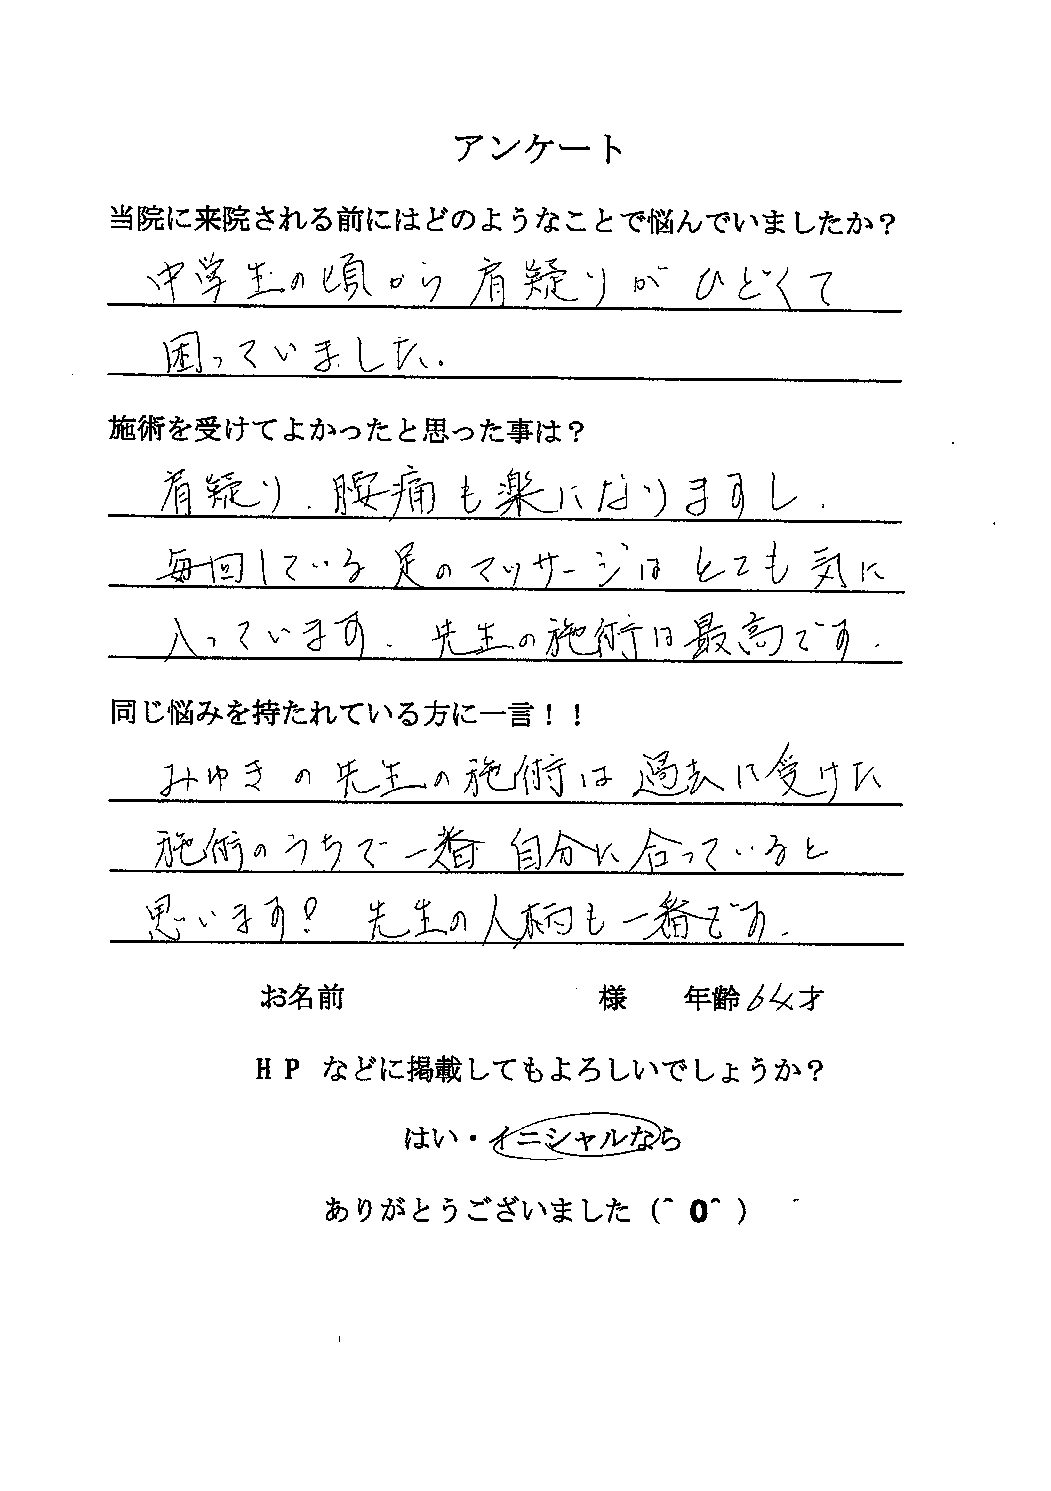 アンケート
当院に来院される前にはどのようなことで悩んでいましたか？
中学生の頃から肩疑りがひどくて
困っていました.
施術を受けてよかったと思った事は？
肩疑り、腰痛も楽になりますし、
毎回している足のマッサージはとても気に
入っています. 先生の施術は最高です.
同じ悩みを持たれている方に一言！！
みゆきの先生の施術は過去に受けた
施術のうちで一番自分に合っていると
思います! 先生の人柄も一番です.
お名前 様 年齢64才
HP などに掲載してもよろしいでしょうか？
はい・イニシャルなら
ありがとうございました（＾0＾）